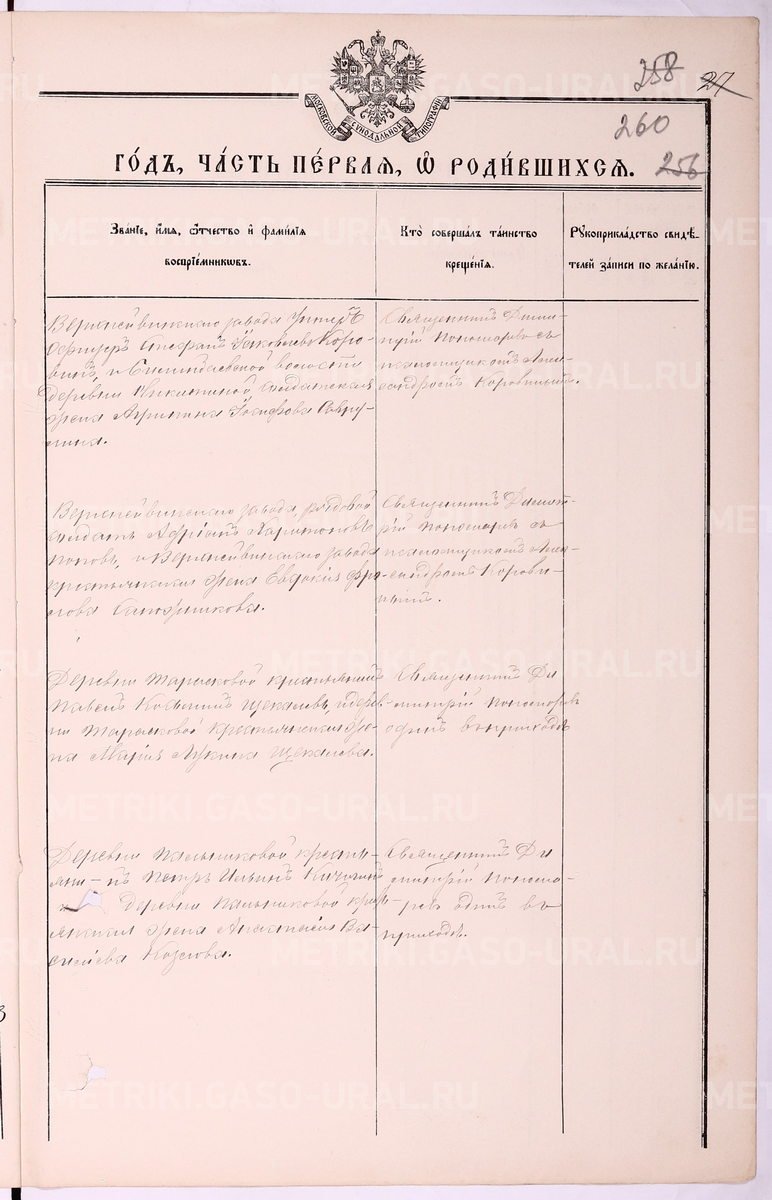 258 27
260
256
МОСКОВСКОЙ СѴНОДАЛЬНОЙ ТИПОГРАФІИ
ГО́ДЪ, ЧА́СТЬ ПЕ́РВАЯ, Ѡ҆ РОДИ́ВШИХСЯ.
Зва́нїе, и҆́мѧ, ѻ҆́тчество и҆ фами́лїѧ
воспрїе́мникωвъ.
Кто̀ соверша́лъ та́инство
креще́нїѧ.
Рꙋкоприкла́дство свидѣ́-
телей за́писи по жела́нїю.
Верхнейвинскаго завода Унтеръ
Офицеръ Стефанъ Іаковлевъ Коро-
винъ, и волости
деревни Никитиной солдатская
жена Агрипина Іосифова Вавру-
шина.
Священникъ Дими-
трій Пономаревъ съ
псаломщикомъ Алек-
сандромъ Коровинымъ.
Верхнейвинскаго завода, рядовой
солдатъ Адріанъ Харитоновъ
Поповъ, и Верхнейвинскаго завода
крестьянская жена Евдокія Фро-
лова Сапожникова.
Священникъ Димит-
рій Пономаревъ съ
псаломщикомъ Алек-
сандромъ Корови-
нымъ.
Деревни Тарасковой крестьянинъ
Павелъ Козьминъ Щекалевъ, и дерев-
ни Тарасковой крестьянская же-
на Марія Лукина Щекалева.
Священникъ Ди-
митрій Пономаревъ
одинъ въ приходѣ
Деревни Пальниковой крестья-
нинъ Петръ Ильинъ
и деревни Пальниковой крест-
янская жена Анастасія Ва-
сильева Козлова.
Священникъ Ди-
митрій Понома-
ревъ одинъ въ
приходѣ.
METRIKI.GASO-URAL.RU